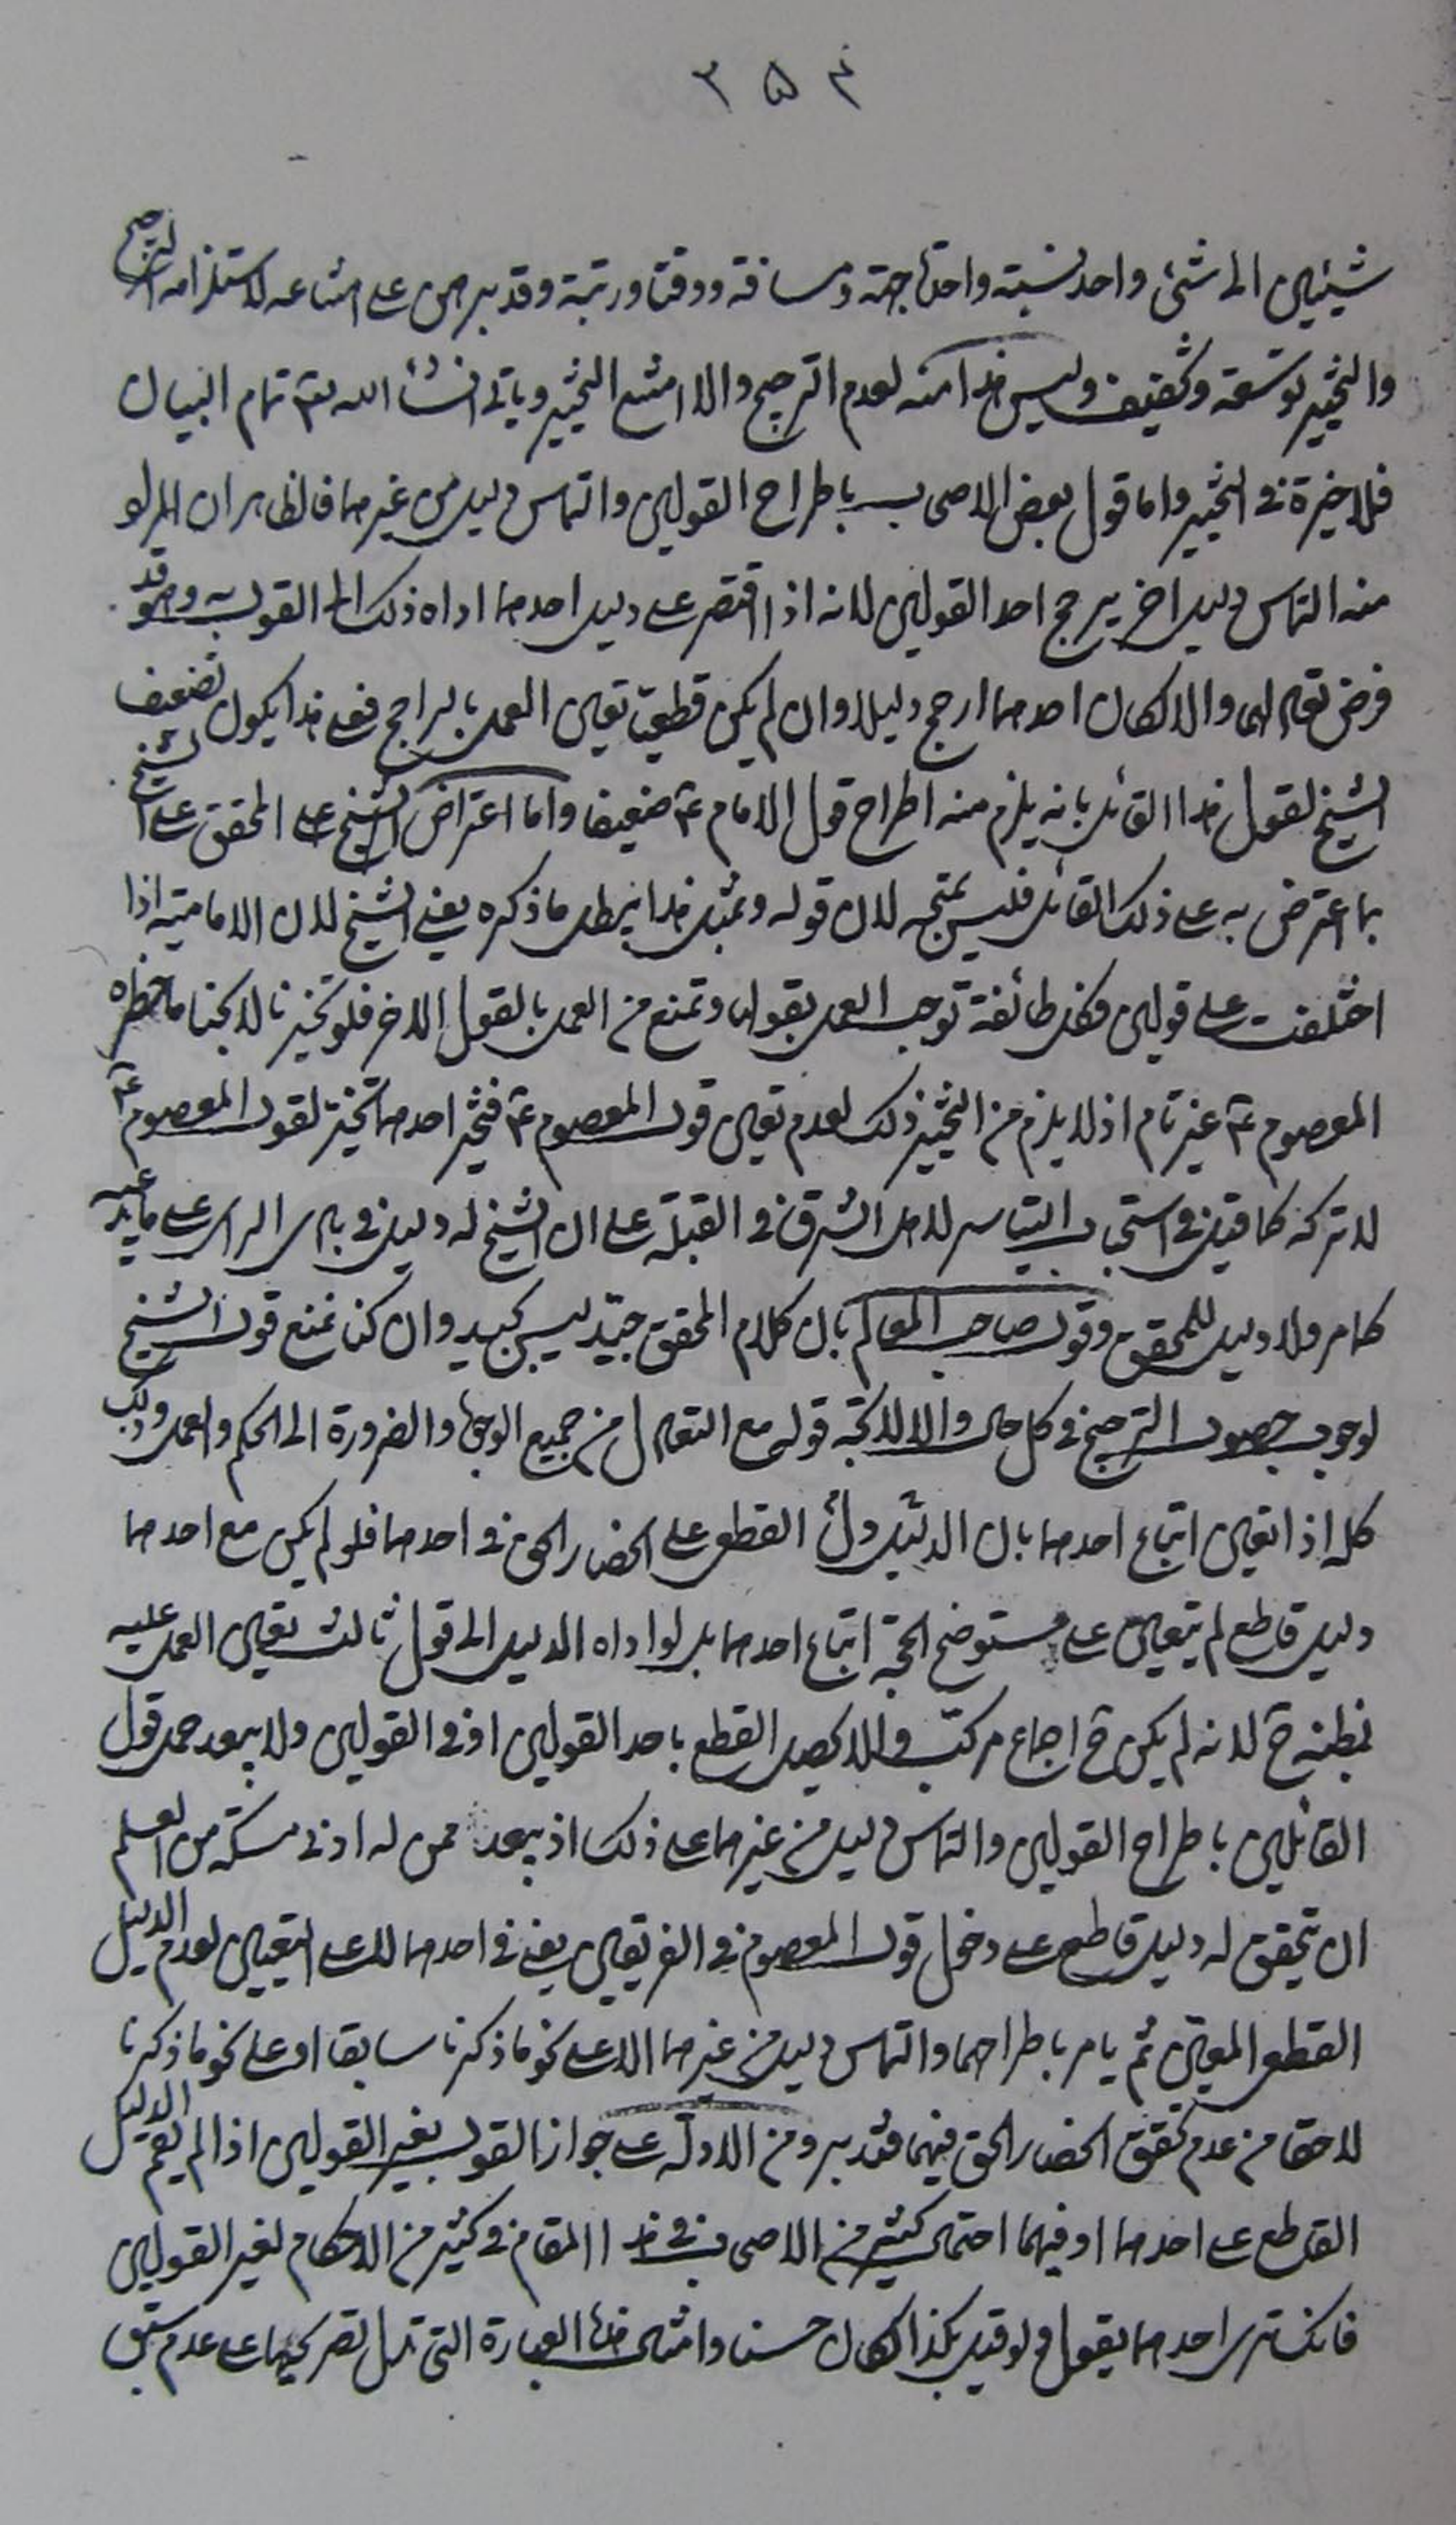 ٣٥٤
شيئين الى شئ واحد نسبته واحدة جهة ومسافة ووقتا ورتبة وقد برهن على امتناعه لاستلزامه الترجيح
والتخيير توسعة وتخفيف وليس هذا منه لعدم الترجيح والا امتنع التخيير وياتى انشاء الله تعم تمام البيان
فلا خيرة فى التخيير واما قول بعض الاصحاب باطراح القولين والتماس دليل من غيرهما فالظاهر ان المراد
منه التماس دليل اخر يرجح احد القولين لانه اذا اقتصر على دليل احدهما اداه ذلك الى القول به وهو قد
فرض تعادلهما والا لكان احدهما ارجح دليلا وان لم يكن قطعيا تعين العمل بالراجح فعلى هذا يكون تضعيف
الشيخ لقول هذا القائل بانه يلزم منه اطراح قول الامام ع ضعيفا واما اعتراض الشيخ على المحقق على الشيخ
بما اعترض به على ذلك القائل فليس بمتجه لان قوله وبمثل هذا يبطل ما ذكره يعنى الشيخ لان الامامية اذا
اختلفت على قولين فكل طائفة توجب العمل بقولها وتمنع من العمل بالقول الاخر فلو تخيرنا لابحنا ما حظره
المعصوم ع غير تام اذ لا يلزم من التخيير ذلك لعدم تعين قول المعصوم ع فتخير احدهما تخير لقول المعصوم ع
لا تركه كما قيل فى استحباب التياسر لاهل الشرق فى القبلة على ان الشيخ له دليل فى بادى الراى على ما يدعيه
كما مر ولا دليل للمحقق وقول صاحب المعالم بان كلام المحقق جيد ليس بجيد وان كنا نمنع قول الشيخ
لوجوب حصول الترجيح فى كل حال والا لاتجه قوله مع التعادل من جميع الوجوه والضرورة الى الحكم والعمل وذلك
كله اذا تعين اتباع احدهما بان الدليل دل القطع على انحصار الحق فى احدهما فلو لم يكن مع احدهما
دليل قاطع لم يتعين على مستوضح الحجة اتباع احدهما بل لو اداه الدليل الى قول ثالث تعين العمل عليه
بظنه ح لانه لم يكن ح اجماع مركب والا لحصل القطع باحد القولين او فى القولين ولا يبعد حمل قول
القائلين باطراح القولين والتماس دليل من غيرهما على ذلك اذ يبعد ممن له ادنى مسكة من العلم
ان تحقق له دليل قاطع على دخول قول المعصوم فى الفريقين يعنى فى احدهما لا على التعيين لعدم الدليل
القطعى المعين ثم يامر باطراحهما والتماس دليل من غيرهما الا على نحو ما ذكرنا سابقا او على نحو ما ذكرنا
لاحقا من عدم تحقق انحصار الحق فيهما فتدبر ومن الادلة على جواز القول بغير القولين اذا لم يقم الدليل
القاطع على احدهما او فيهما احتمال كثير من الاصحاب فى هذا المقام فى كثير من الاحكام لغير القولين
فانك ترى احدهما يقول ولو قيل بكذا لكان حسنا وامثال هذه العبارة التى تدل تصريحا على عدم سبق